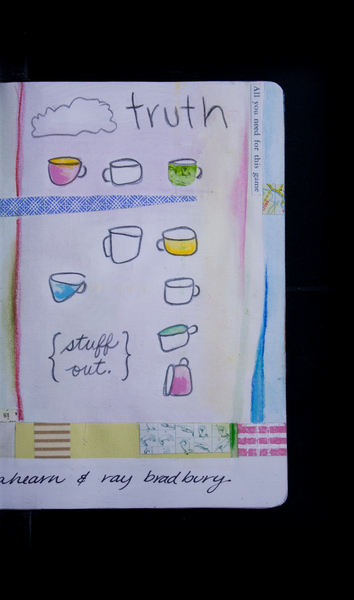 truth
All you need for this game
{stuff
out.}
ahearn & ray bradbury.